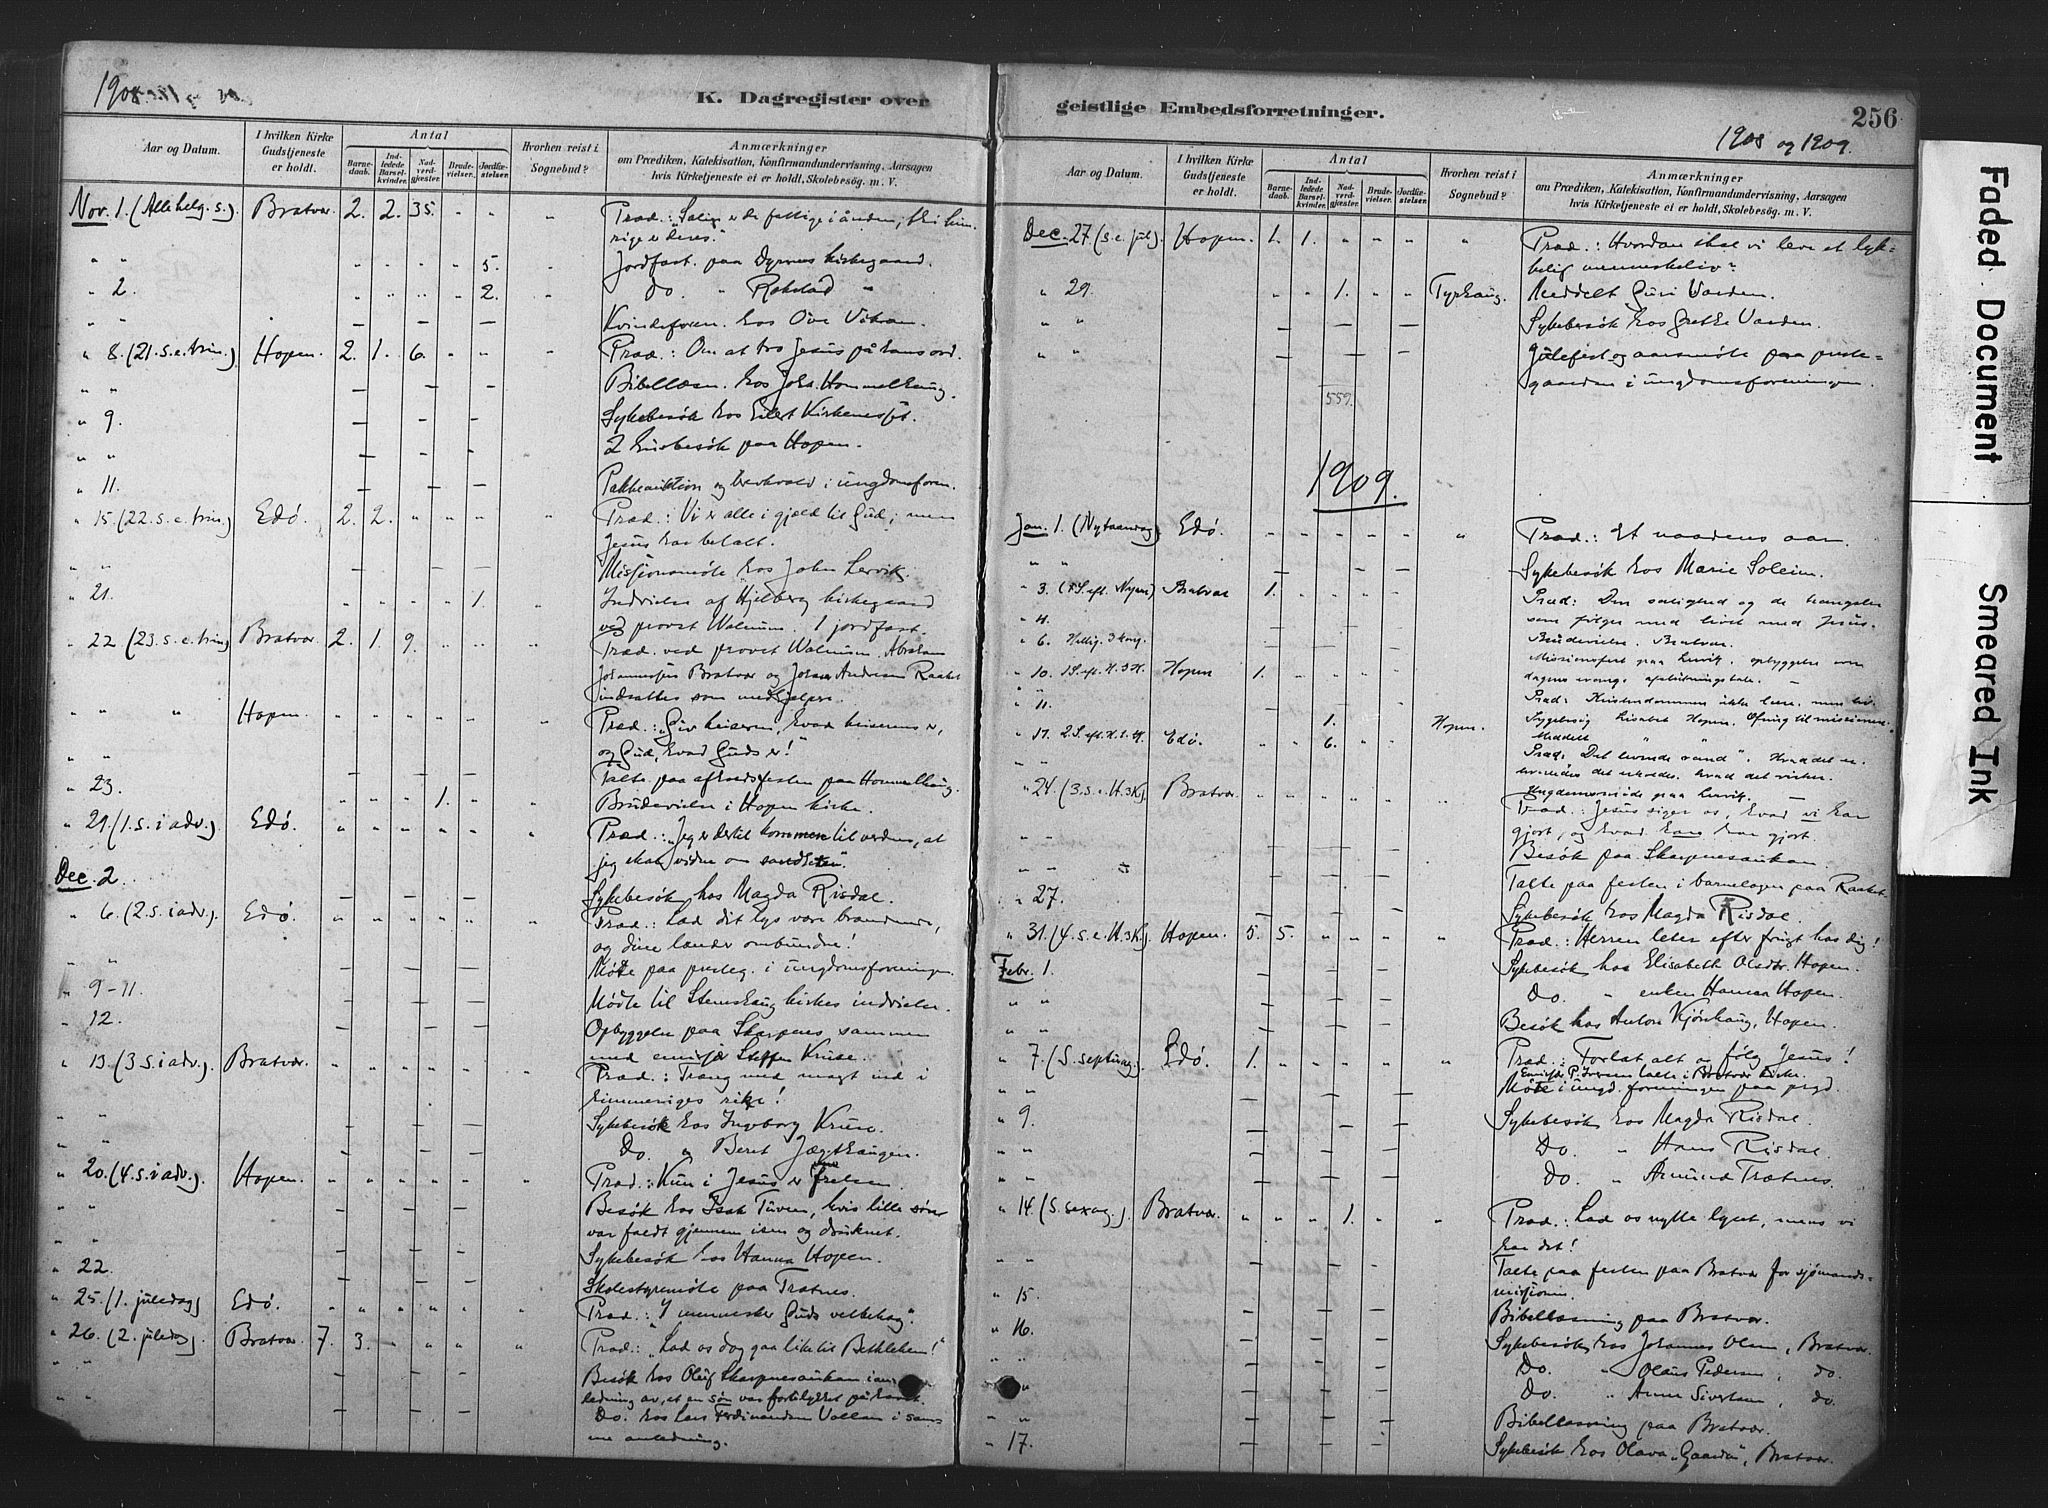 1908
K. Dagregister over
Aar og Datum.
I hvilken Kirke Gudstjeneste er holdt.
Antal
Barnedaab.
Indledede Barselkvinder.
Nadverdgjester.
Brudevielser.
Jordfæstelser.
Hvorhen reist i Sognebud?
Anmærkninger
om Prædiken, Katekisation, Konfirmandundervisning, Aarsagen
hvis Kirketjeneste ei er holdt, Skolebesøg. m. V.
Nov. 1. (Alle helg. s.). Bratvær 2. 2. 35. " " " Præd.: "Salige er de fattige i ånden; thi him-
rige er deres."
" " 5. " Jordfæst. paa Dyrnes kirkegaard.
" 2. " " " " 2. " Do. " Rokstad "
" " Kvindeforen. hos Ove Vikan.
" 8. (21. s. e. trin.) Hopen. 2. 1. 6. " " " Præd.: Om at tro Jesus på hans ord.
" " Bibellæsn. hos Johs. Hommelhaug.
" 9. Sykebesök hos Eilert Kirkenesset.
" " 2 husbesök paa Hopen.
" 11. Pakkeauktion og basar i ungdomsforen.
" 15. (22. s. e. trin.) Edö. 2. 2. " " " " Præd.: Vi er alle i gjæld til Gud; men
Jesus har betalt.
" " Missionsmöte hos John Lervik.
" 21. 1. " Indvielse af Hjelberg kirkegaard
ved provst Walnum. 1 jordfæst.
" 22 (23. s. e. trin) Bratvær 2. 1. 9. " " " Præd. ved provst Walnum. Abraham
Johannessen Bratvær og Johan Andersen Raaket
indsattes som medhjelpere.
" " " Hopen. " " " " " " Præd.: "Giv keiseren, hvad keiserens er,
og Gud, hvad Guds er!"
" " Talte paa afskedsfesten paa Hommelhaug.
" 23. 1. " Brudevielse i Hopen kirke.
" 29. (1. s. i adv.) Edö. " " " " " " Præd.: "Jeg er dertil kommen til verden, at
jeg skal vidne om sandheten".
Dec. 2. Sykebesök hos Magda Risdal.
" 6. (2. s. i adv.). Edö. " " " " " " Præd.: Lad dit lys være brændende,
og dine lænder ombundne!
" " Möte paa presteg. i ungdomsforeningen.
" 9-11. Mödte til Stemshaug kirkes indvielse.
" 12. Opbyggelse paa Skarpnes, sammen
med emissær Steffen Kruse.
" 13. (3 s. i adv.). Bratvær. " " " " " " Præd.: Træng med magt ind i
himmeriges rike!
" " Sykebesök hos Ingeborg Kruse.
" " Do. " Beret Jægthaugen.
" 20. (4. s. i adv.). Hopen. " " " " " " Præd.: Kun i Jesus er frelsen.
" " Besök hos Isak Tuven, hvis lille sön
var faldt gjennem isen og druknet.
" " Sykebesök hos Hanna Hopen.
" 22. Skolestyremöte paa Trætnes.
" 25. (1. juledag) Edö. " " " " " " Præd.: "I mennesker Guds velbehag".
" 26. (2. juledag). Bratvær. 7. 3. " " " " Præd.: "Lad os dog gaa like til Bethlehem!"
" " Besök hos Oluf Skarpnesaukan i an-
ledning av, at en sön var forulykket på havet.
" " Do. hos Lars Ferdinandsen Vollan i sam-
me anledning.
geistlige Embedsforretninger.
256
1908 og 1909.
Aar og Datum.
I hvilken Kirke Gudstjeneste er holdt.
Antal
Barnedaab.
Indledede Barselkvinder.
Nadverdgjester.
Brudevielser.
Jordfæstelser.
Hvorhen reist i Sognebud?
Anmærkninger
om Prædiken, Katekisation, Konfirmandundervisning, Aarsagen
hvis Kirketjeneste ei er holdt, Skolebesög. m. V.
Dec. 27 (s. e. jul). Hopen. 1. 1. " " " " Præd.: Hvordan skal vi leve et lyk-
kelig menneskeliv?
" 29. " " 1. " " Tyrhaug. Meddelt Guri Varden.
" " Sykebesök hos Grethe Varden.
" " Julefest og aarsmöte paa preste-
gaarden i ungdomsforeningen.
559.
1909.
Jan. 1. (Nytaarsdag) Edö. " " " " " " Præd.: Et naadens aar.
" " Sykebesök hos Marie Soleim.
" 3. (S. eft. Nyaar) Bratvær 1. Præd: Den salighed og de trængsler
som fölger med livet med Jesus.
" 4. Brudevielse. Bratvær.
" 6. Hellig. 3 kong. Missionsfest paa Lervik. opbyggelse over
dagens evang. afslutningstale.
" 10. 1 S. eft. H. 3 K. Hopen 1. Præd: Kristendommen ikke lære, men liv.
" 11. 1. Hopen. Sygebesög Lisabet Hopen.
Meddelt
" 17. 2 S. eft. H. 3. K. Edö. " " 6. " " Præd: "Det levende vand". Hvad det er.
hvorledes det erholdes. hvad det virker.
" " Ungdomsmöde paa Lervik.
" 24. (3. s. e. H. 3 K). Bratvær. " " " " " " Præd.: Jesus siger os, hvad vi har
gjort, og hvad hans har gjort.
" " Besök paa Skarpnesaukan.
" " Talte paa festen i barnelagen paa Raaket.
" 27. Sykebesök hos Magda Risdal.
" 31. (4. s. e. H. 3 K). Hopen. 5. 5. " " " " Præd.: Herren leter efter frugt hos dig!
Febr. 1. Sykebesök hos Elisabeth Olsdtr. Hopen.
" " Do. " enken Hanna Hopen.
" " Besök hos Anton Kjönhaug, Hopen.
" 7. (S. septuag.) Edö. 1. " Præd.: Forlat alt og fölg Jesus!
Emissær P. Iversen talte i Bratvær kirke.
" " Möte i ungd. foreningen paa prgd.
" 9. Sykebesök hos Magda Risdal.
" " Do. " Hans Risdal.
" " Do. " Amund Trætnes.
" 14. (S. sexag.). Bratvær. " " 1. " " " Præd.: Lad os nytte lyset, mens vi
har det!
" " Talte paa festen paa Bratvær for sjömands-
missionen.
" 15. Bibellæsning paa Bratvær.
" 16. Sykebesök hos Johannes Olsen, Bratvær.
" " Do. " Olaus Pedersen, do.
" " Do. " Anne Sivertsen, do.
" " Bibellæsning paa Bratvær.
" 17. Sykebesök hos Olava "Gaarden", Bratvær.
Faded Document
Smeared Ink